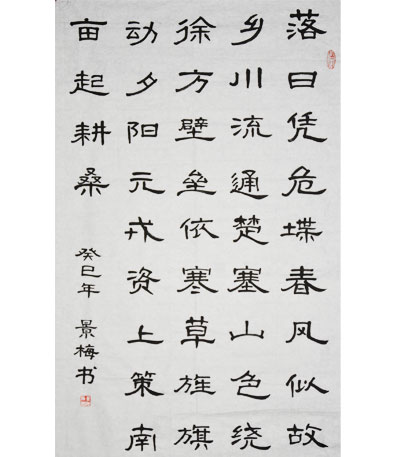 落日凭危堞春风似故
乡川流通楚塞山色绕
徐方壁垒依寒草旌旗
动夕阳元戎资上策南
亩起耕桑
癸巳年 景梅书